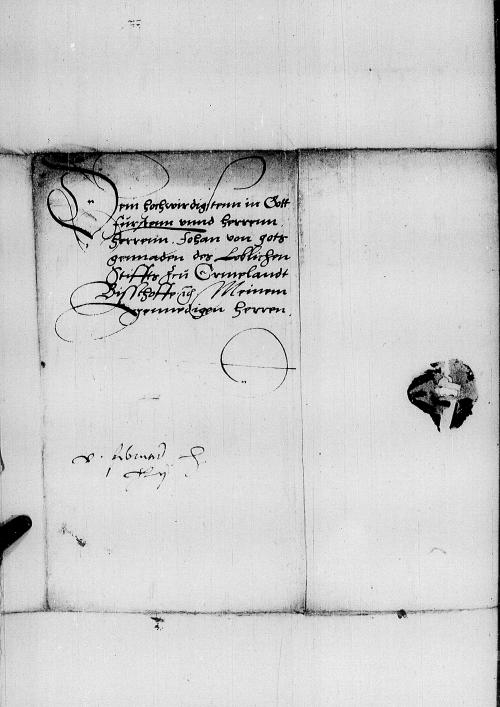 Dem hochwirdigstenn in Gott
Fürstenn vnnd herrenn
herrenn Johan von gots
gennaden des Loblichen
Stiffts zcu Ermelandt
Bisschoffe ꝛc Meinem
gennedigen herren